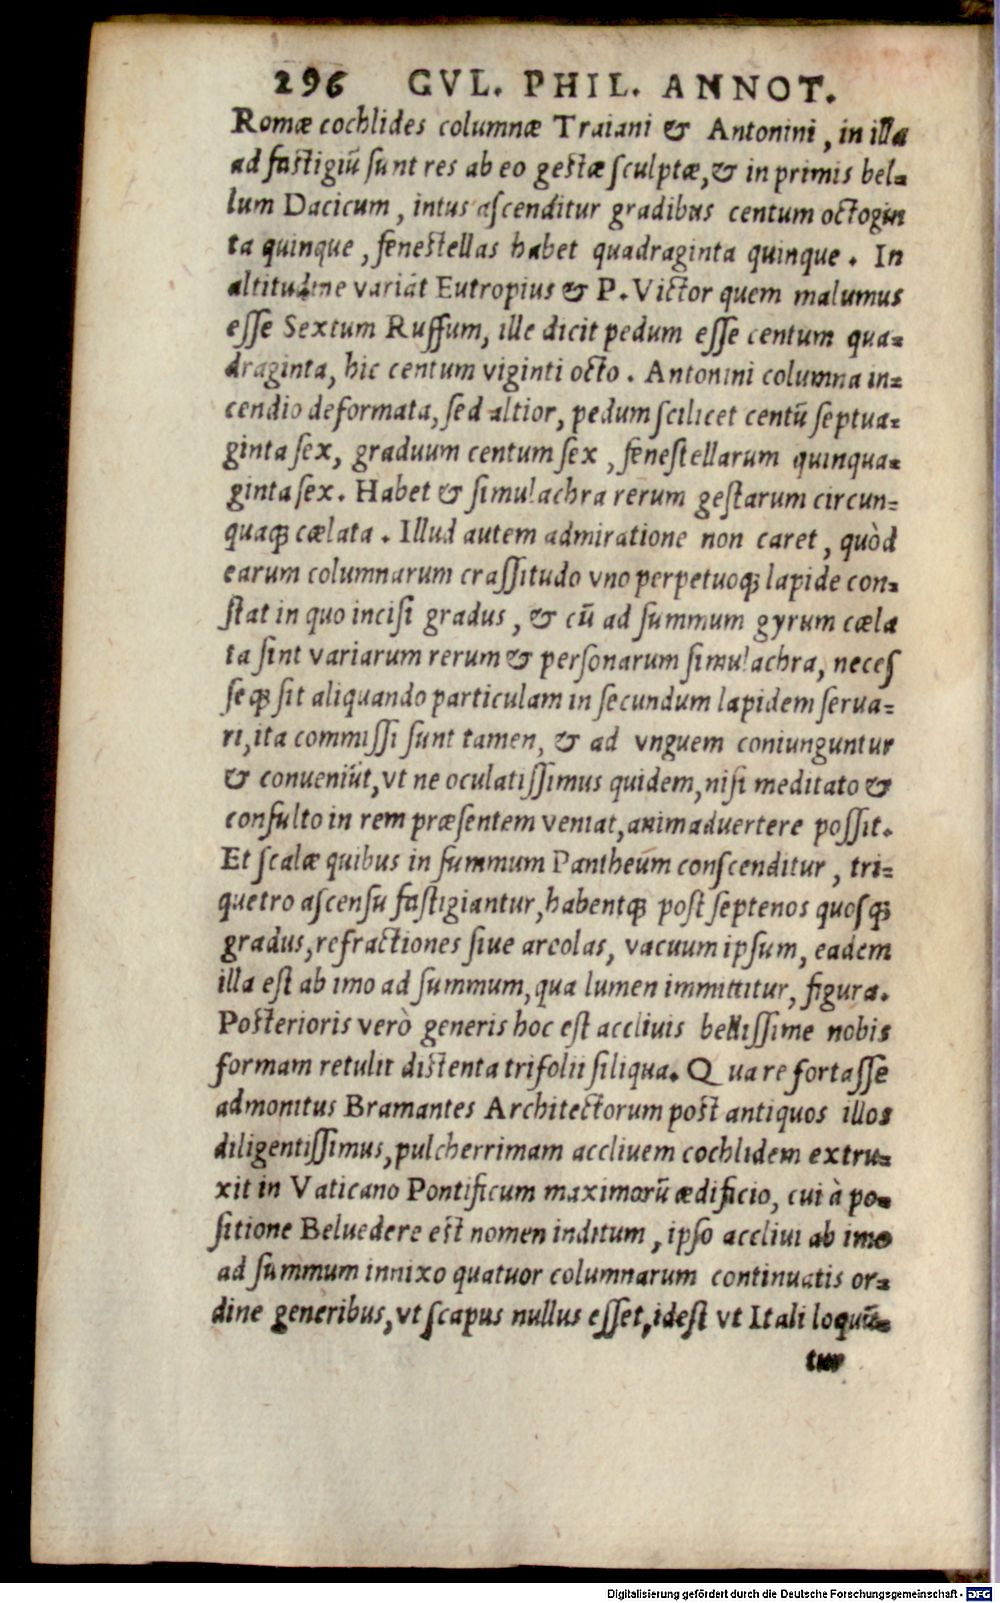 296 GVL. PHIL. ANNOT.
Romæ cochlides columnæ Traiani & Antonini, in illa
ad fastigiũ sunt res ab eo gestæ sculptæ, & in primis bel-
lum Dacicum, intus ascenditur gradibus centum octogin
ta quinque, fenestellas habet quadraginta quinque. In
altitudine variãt Eutropius & P. Victor quem malumus
esse Sextum Ruffum, ille dicit pedum esse centum qua-
draginta, hic centum viginti octo. Antonini columna in-
cendio deformata, sed altior, pedum scilicet centũ septua-
ginta sex, graduum centum sex, fenestellarum quinqua-
ginta sex. Habet & simulachra rerum gestarum circun-
quaq; cælata. Illud autem admiratione non caret, quòd
earum columnarum crassitudo vno perpetuoq; lapide con-
stat in quo incisi gradus, & cũ ad summum gyrum cæla
ta sint variarum rerum & personarum simulachra, neces
seq; sit aliquando particulam in secundum lapidem serua-
ri, ita commissi sunt tamen, & ad vnguem coniunguntur
& conueniũt, vt ne oculatissimus quidem, nisi meditato &
consulto in rem præsentem veniat, animaduertere possit.
Et scalæ quibus in summum Pantheum conscenditur, tri-
quetro ascensu fastigiantur, habentq; post septenos quosq;
gradus, refractiones siue areolas, vacuum ipsum, eadem
illa est ab imo ad summum, qua lumen immittitur, figura.
Posterioris verò generis hoc est accliuis bellissime nobis
formam retulit distenta trifolii siliqua. Qua re fortasse
admonitus Bramantes Architectorum post antiquos illos
diligentissimus, pulcherrimam accliuem cochlidem extru-
xit in Vaticano Pontificum maximorũ ædificio, cui à po-
sitione Beluedere est nomen inditum, ipso accliui ab imo
ad summum innixo quatuor columnarum continuatis or-
dine generibus, vt scapus nullus esset, idest vt Itali loquũ-
tur
Digitalisierung gefördert durch die Deutsche Forschungsgemeinschaft - DFG